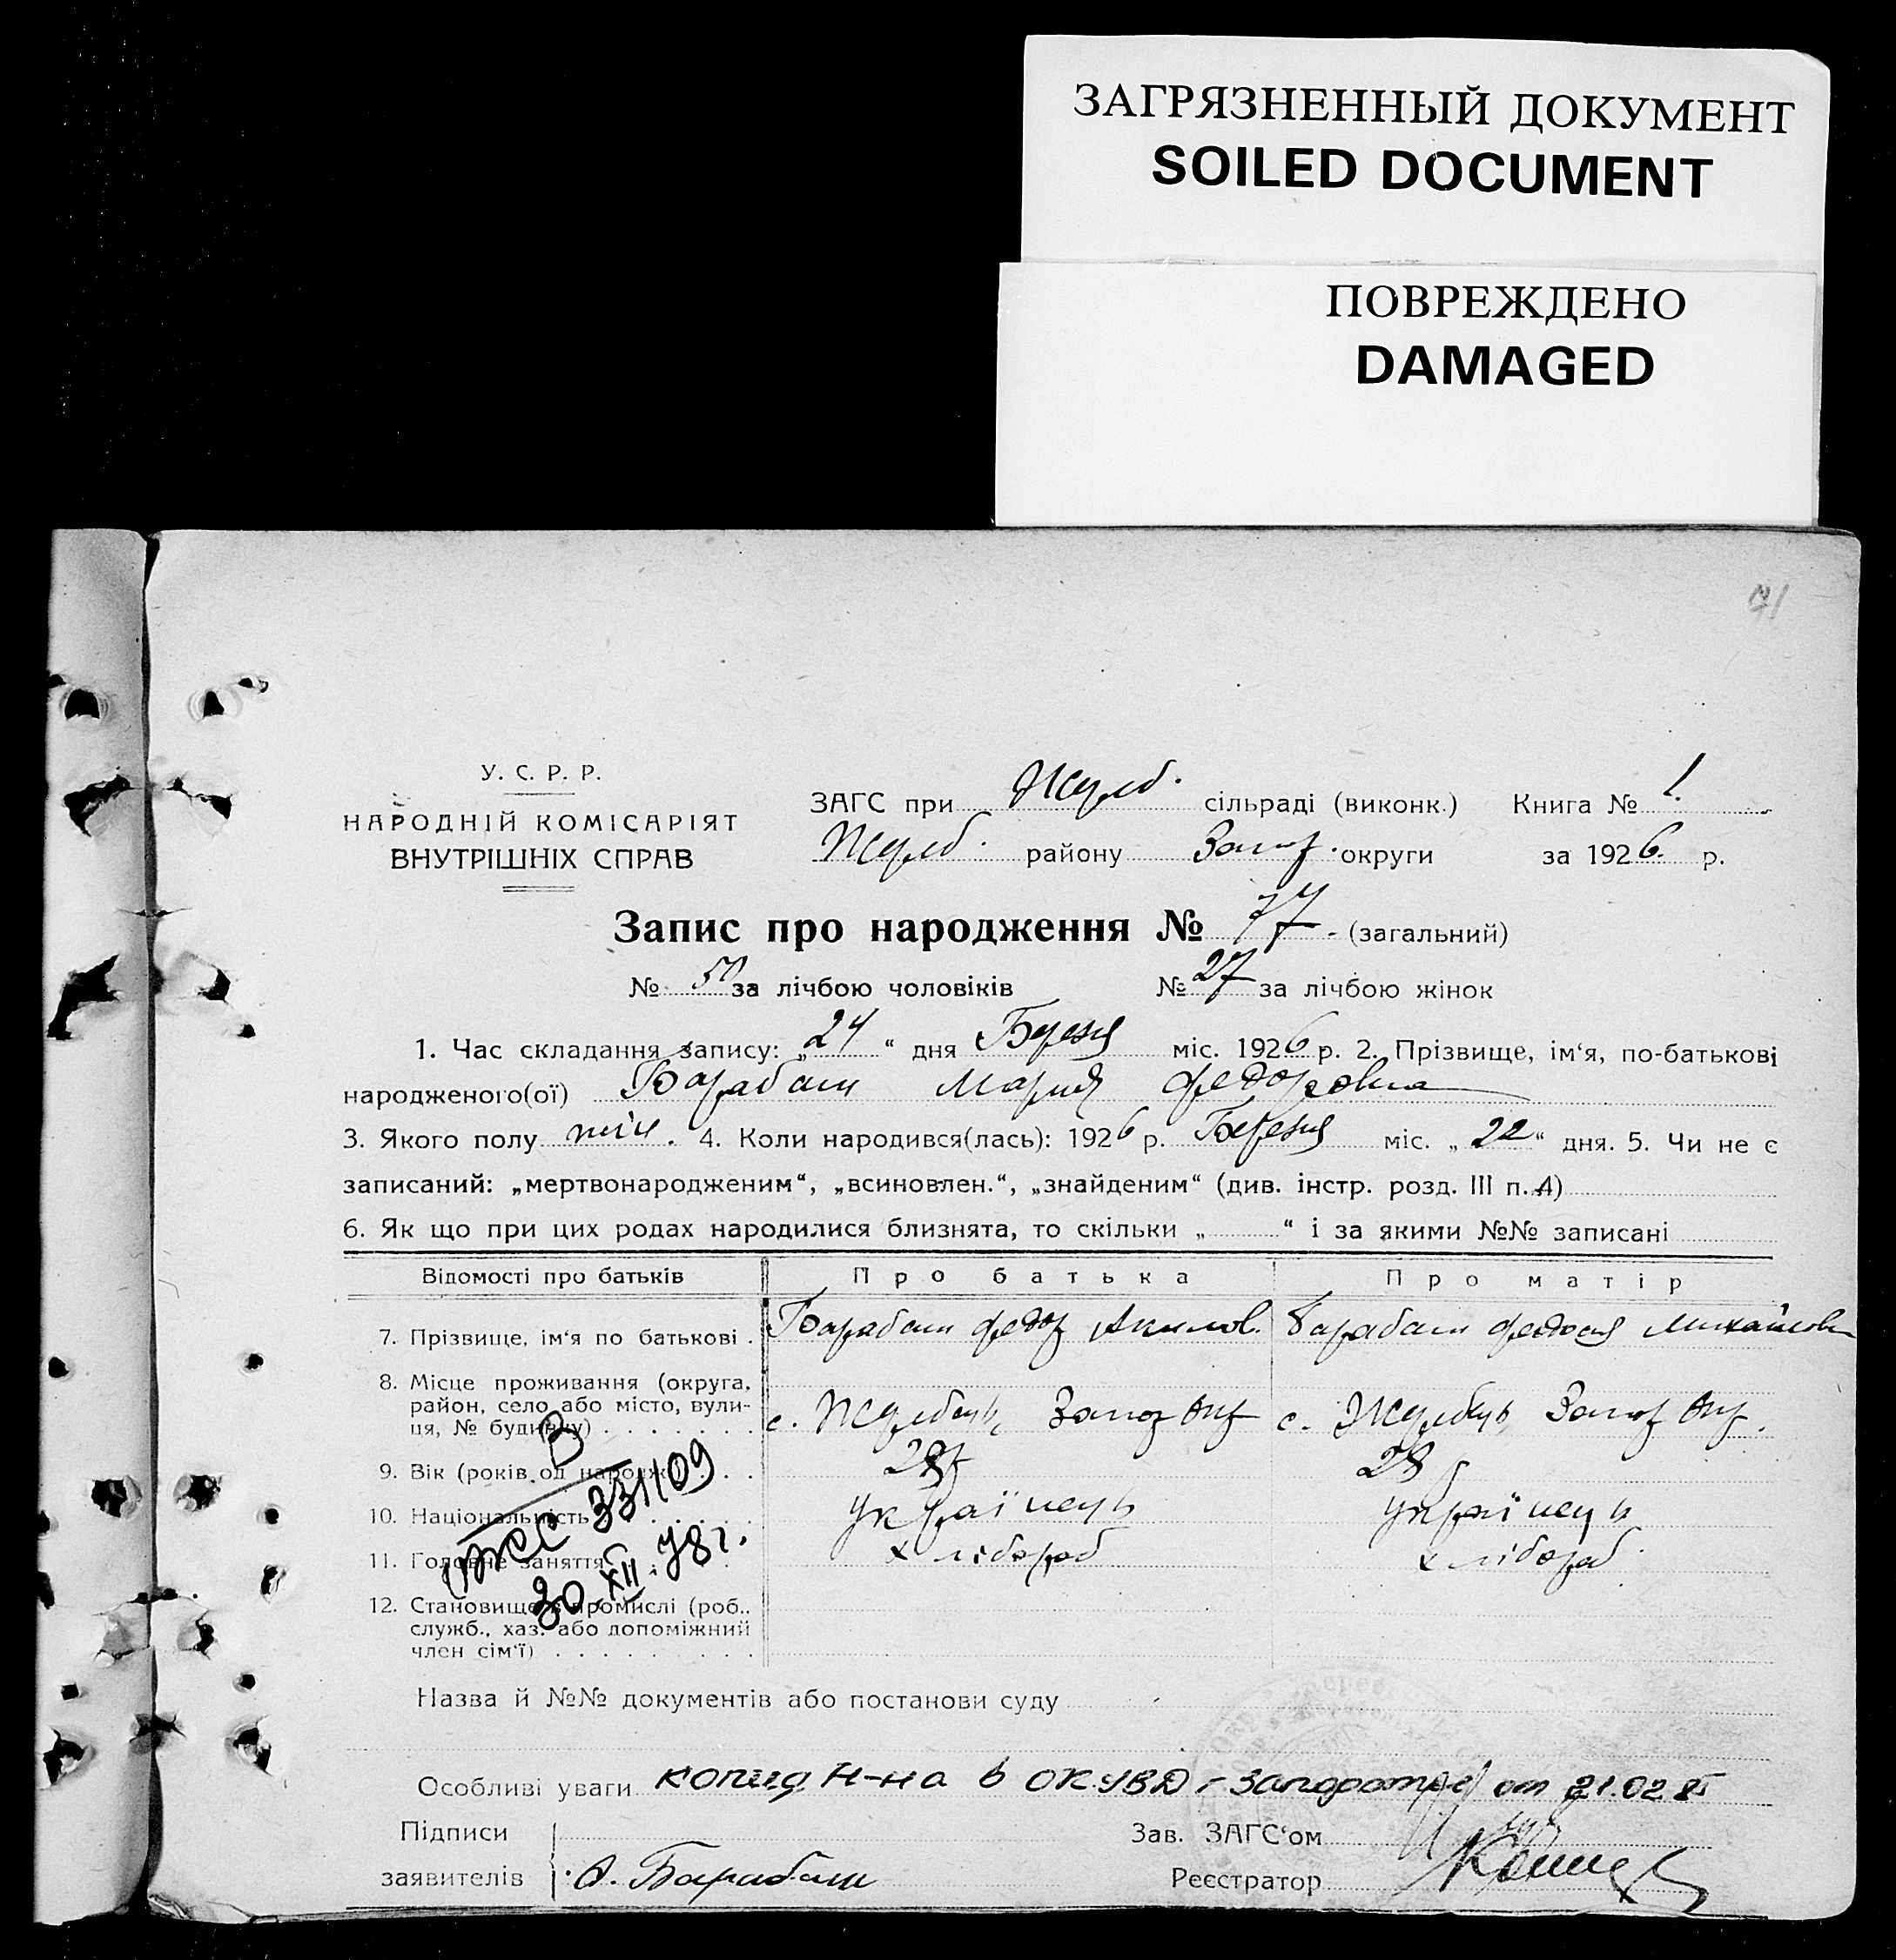 ЗАГРЯЗНЕННЫЙ ДОКУМЕНТ
SOILED DOCUMENT
ПОВРЕЖДЕНО
DAMAGED
У. С. Р. Р.
НАРОДНІЙ КОМІСАРІЯТ
ВНУТРІШНІХ СПРАВ
ЗАГС при Жереб. сільраді (виконк.) Книга № 1.
Жереб. району Запор. округи за 1926. р.
Запис про народження № 77 (загальний)
№ 50 за лічбою чоловіків № 27 за лічбою жінок
1. Час складання запису: „24“ дня Березня міс. 1926 р. 2. Прізвище, ім‘я, по-батькові
народженого(ої) Барабаш Мария Федоровна
3. Якого полу жін. 4. Коли народився(лась): 1926 р. Березня міс. „22“ дня. 5. Чи не є
записаний: „мертвонародженим“, „всиновлен.“, „знайденим“ (див. інстр. розд. III п. 4)
6. Як що при цих родах народилися близнята, то скільки „ “ і за якими №№ записані
Відомості про батьків Про батька Про матір
7. Прізвище, ім‘я по батькові . Барабаш Федор Акимов. Барабаш Федося Михайловн
8. Місце проживання (округа,
район, село або місто, вули-
ця, № будинку) . . . . . . . с. Жеребець Запор окр с. Жеребець Запор окр.
9. Вік (років од народж. . . . 28 28
10. Національність . . . . . . українець українець
11. Головне заняття . . . . . хлібороб хлібороб
12. Становище в промислі (роб.,
служб., хаз. або допоміжний
член сім‘ї) . . . . . . . . .
В
ЖС 331109
30.XII.78г.
Назва й №№ документів або постанови суду
Особливі уваги копия н-на в ОК УВД г Запорожье от 21.02
Підписи
заявителів . Ф. Барабаш
Зав. ЗАГС‘ом
Реєстратор